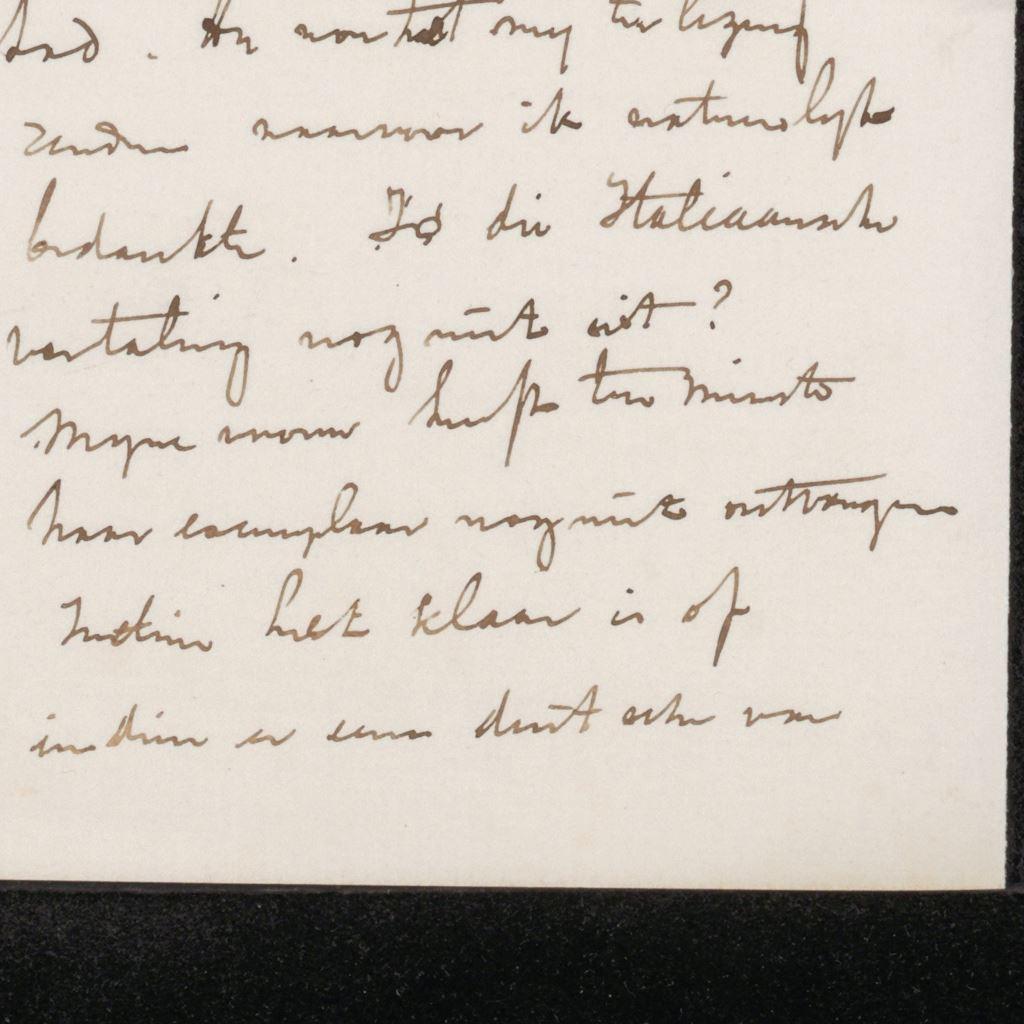 had. Hy vou het my ter lezing
zenden waarvoor ik natuurlyk
bedankte. Is die Italiaansche
vertaling nog niet uit?
Myne vrouw heeft ten minste
haar exemplaar nog niet ontvangen
Indien het klaar is of
indien er eene duitsche van